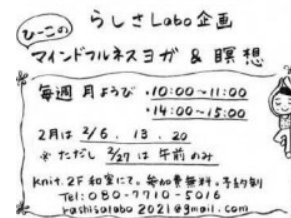 らしさLabo企画
ひーこの
マインドフルネスヨガ & 瞑想
毎週 月ようび ・10:00~11:00
・14:00~15:00
2月は 2/6 . 13 . 20
※ ただし 2/27 は 午前のみ
Knit. 2F 和室にて。参加費無料。予約制
Tel: 080-7710-5016
rashisalabo2021@gmail.com